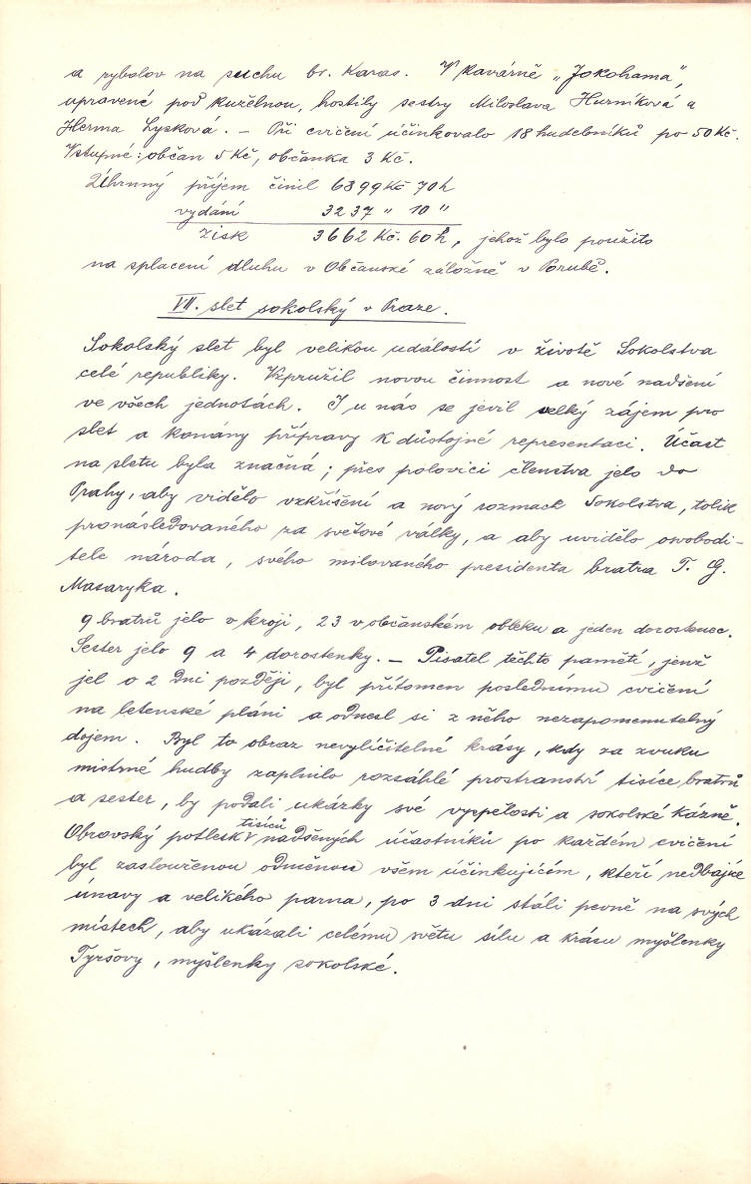 a rybolov na suchu br. Karas. V kavárně „Jokohama“,
upravené pod kuželnou, hostily sestry Miloslava Hurníková a
Herma Lysková. – Při cvičení účinkovalo 18 hudebníků po 50 Kč.
Vstupné: občan 5 Kč, občanka 3 Kč.
Úhrnný příjem činil 6899 Kč 70 h
vydání 3237 " 10 "
zisk 3662 Kč. 60 h, jehož bylo použito
na splacení dluhu v Občanské záložně v Porubě.
VII. slet sokolský v Praze.
Sokolský slet byl velikou událostí v životě Sokolstva
celé republiky. Vzpružil novou činnost a nové nadšení
ve všech jednotách. I u nás se jevil velký zájem pro
slet a konány přípravy k důstojné representaci. Účast
na sletu byla značná; přes polovici členstva jelo do
Prahy, aby vidělo vzkříšení a nový rozmach Sokolstva, tolik
pronásledovaného za světové války, a aby uvidělo osvobodi-
tele národa, svého milovaného presidenta bratra T. G.
Masaryka.
9 bratrů jelo v kroji, 23 v občanském obleku a jeden dorostenec.
Sester jelo 9 a 4 dorostenky. – Pisatel těchto pamětí, jenž
jel o 2 dni později, byl přítomen poslednímu cvičení
na letenské pláni a odnesl si z něho nezapomenutelný
dojem. Byl to obraz nevylíčitelné krásy, kdy za zvuku
mistrné hudby zaplnilo rozsáhlé prostranství tisíce bratrů
a sester, by podali ukázky své vyspělosti a sokolské kázně.
Obrovský potlesk tisíců nadšených účastníků po každém cvičení
byl zaslouženou odměnou všem účinkujícím, kteří nedbajíce
únavy a velikého parna, po 3 dni stáli pevně na svých
místech, aby ukázali celému světu sílu a krásu myšlenky
Tyršovy, myšlenky sokolské.